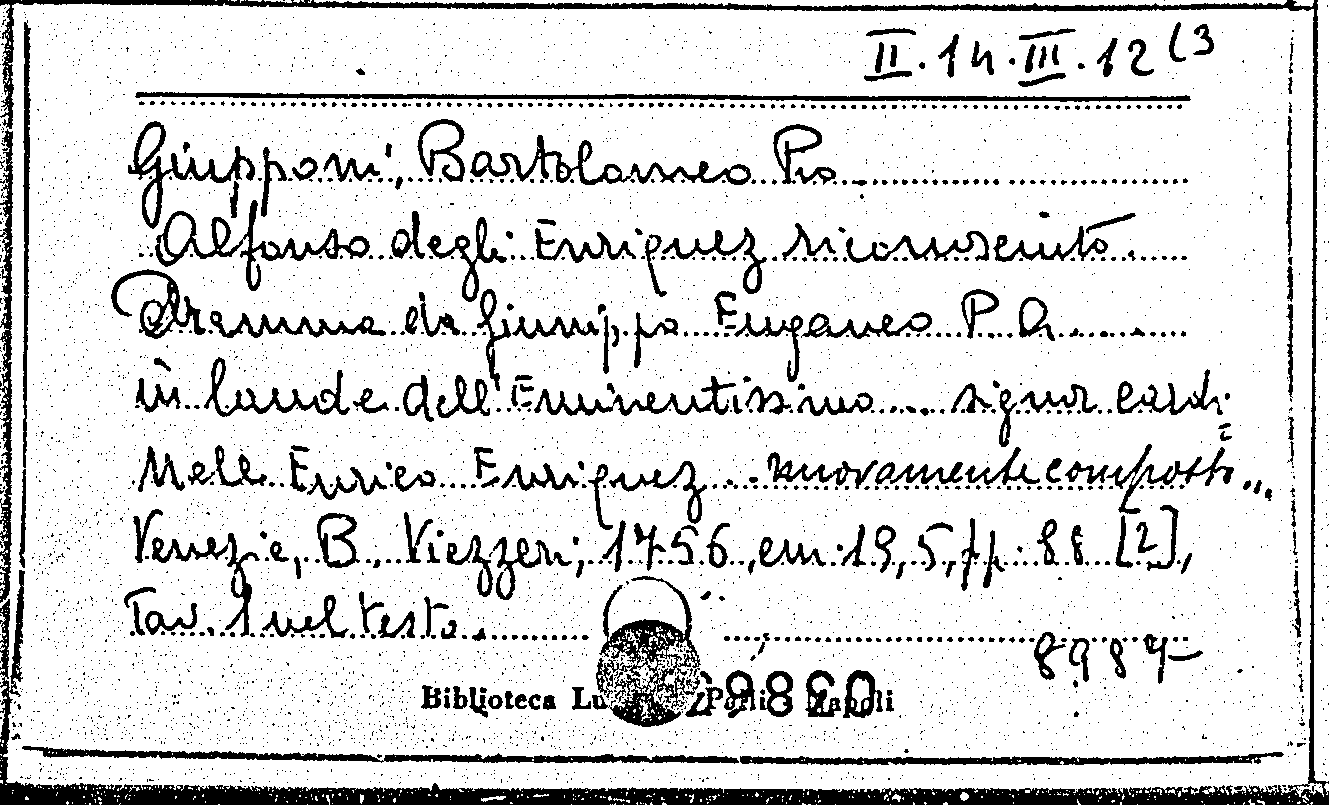 II.14.III.12(3
Giupponi, Bartolomeo Pio
Alfonso degli Enriquez riconosciuto.
Dramma da Giunippo Euganeo P. A.
in laude dell'Eminentissimo... signor cardi=
nale Enrico Enriquez... nuovamente composto...
Venezia, B. Viezzeri, 1756, cm. 19,5, pp. 88 [2],
Tav. 1 nel testo.
8987
29820
Biblioteca Napoli